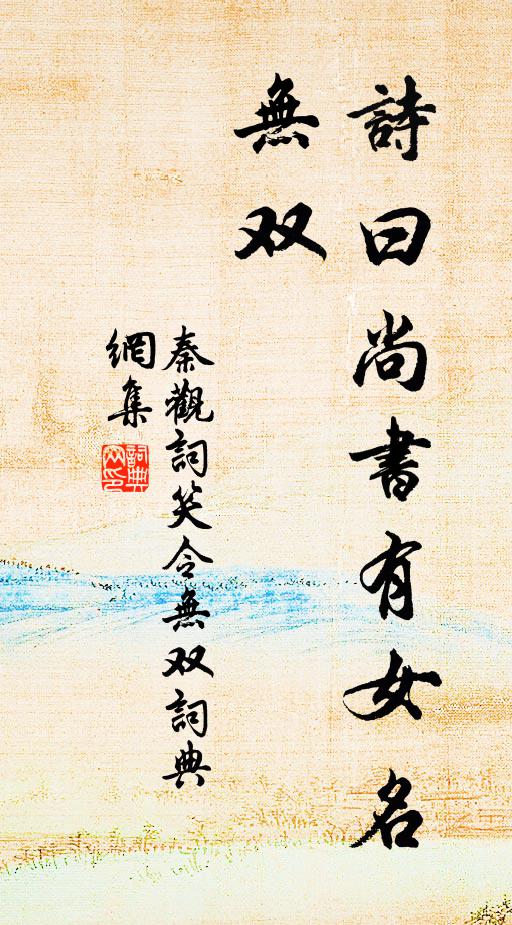 詩曰尚書有女名
無双
秦觀詞笑令無双詞典
網集
詞典
网印